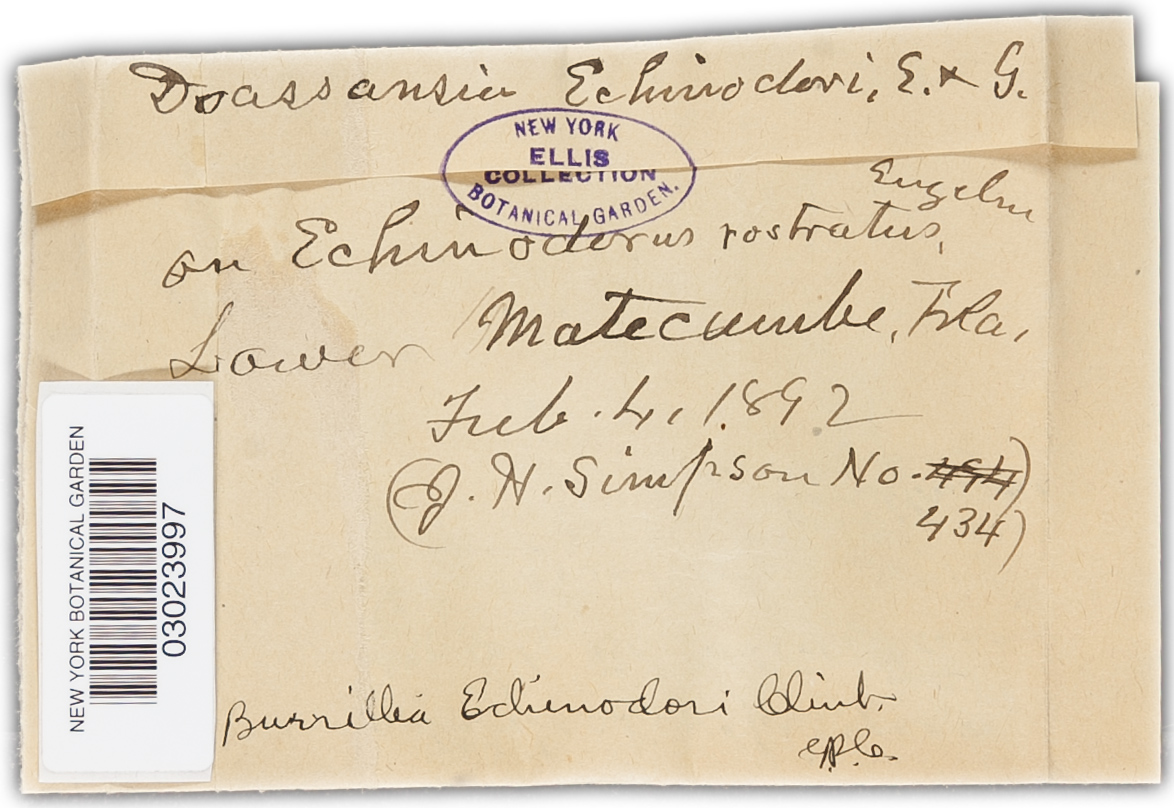 Doassansia Echinodori, E. & G.
NEW YORK
ELLIS
COLLECTION
BOTANICAL GARDEN.
Engelm
on Echinodorus rostratus,
Lower Matecumbe, Fla,
Feb. 4, 1892
(J. H. Simpson No. 494)
434)
NEW YORK BOTANICAL GARDEN
03023997
Burrillia Echinodori Clint.